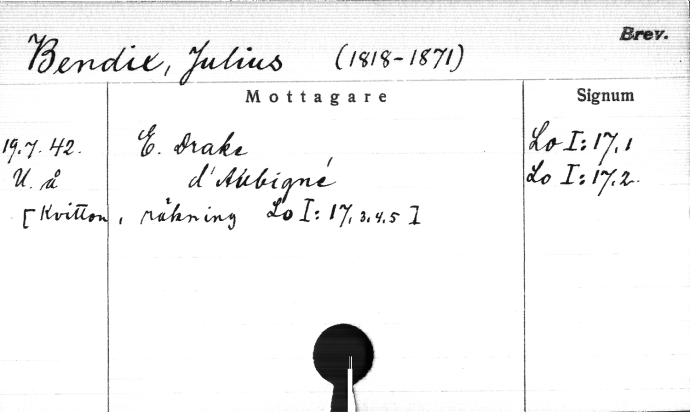 Brev.
Bendix, Julius (1818-1871)
Mottagare Signum
19.7.42. E. Drake Lo I:17,1
U. å d'Aubigné Lo I:17,2
[Kvitton, räkning Lo I:17,3,4,5]